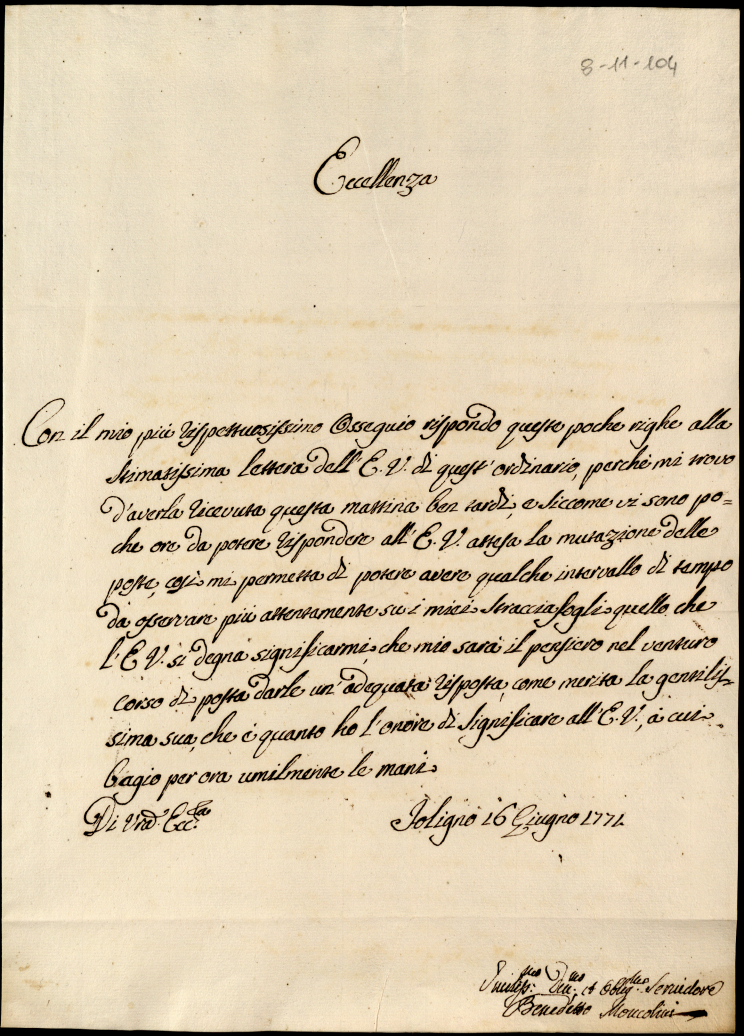 8-11-104
Eccellenza
Con il mio più rispettuosissimo Ossequio rispondo queste poche righe alla
stimatissima lettera dell'E.V. di quest'ordinario, perche mi trovo
d'averla ricevuta questa mattina ben tardi, e siccome vi sono po=
che ore da potere rispondere all'E.V. attesa la mutazione delle
poste, così mi permetta di potere avere qualche intervallo di tempo
da osservare più attentamente su i miei stracciafogli quello che
l'E.V. si degna significarmi, che mio sarà il pensiero nel venturo
corso di posta darle un'adequata risposta, come merita la gentilis=
sima sua, che è quanto ho l'onore di significare all'E.V., à cui
bagio per ora umilmente le mani.
Di Vrã Ecc.za
Foligno 16 Giugno 1771
et Oblig.mo Servidore
Benedetto